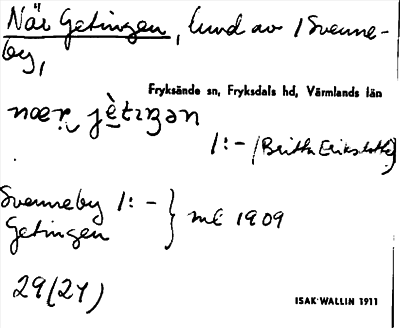 När Getingen, lund av /Svenne-
by,
Fryksände sn, Fryksdals hd, Värmlands län
næṛ jètɪŋən
1:- (Britta Erikslotte)
Svenneby 1:- } mt 1909
Getingen
29(24)
ISAK WALLIN 1911